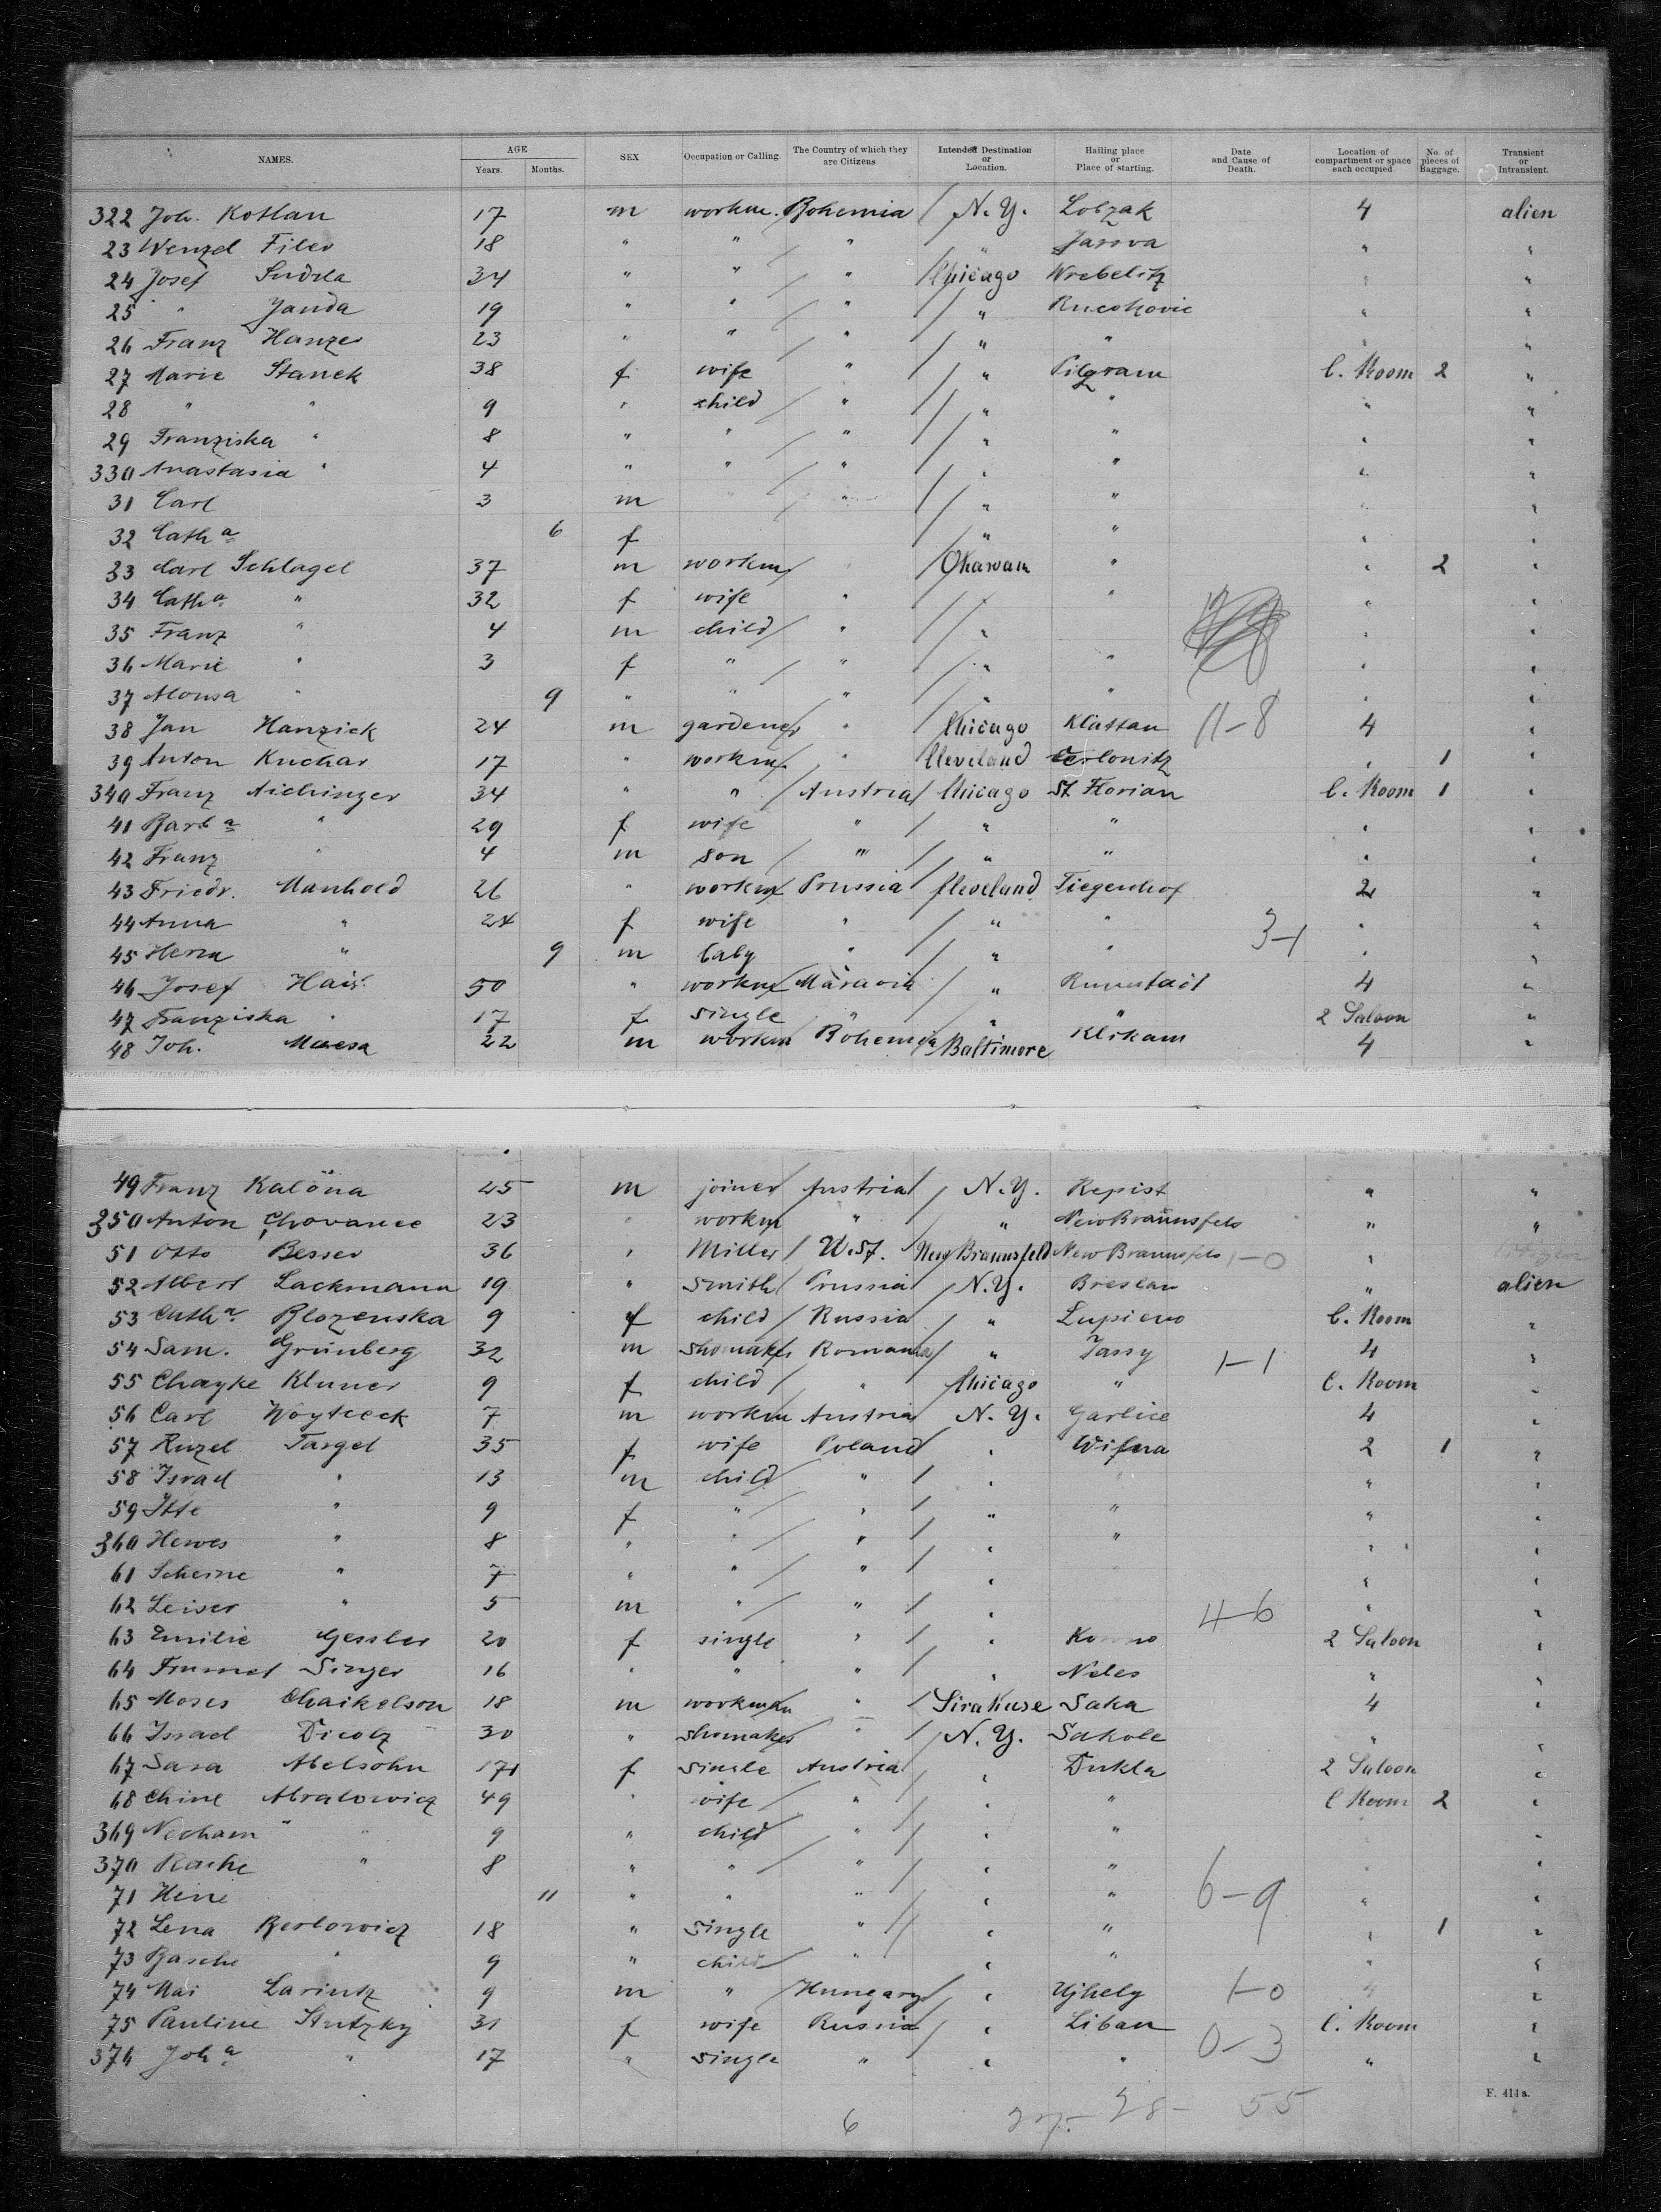 NAMES. AGE Years. Months. SEX Occupation or Calling. The Country of which they are Citizens Intended Destination or Location. Hailing place or Place of starting. Date and Cause of Death. Location of compartment or space each occupied No. of pieces of Baggage. Transient or Intransient.
322 Joh. Kotlan 17 m workm. Bohemia N.Y. Lobzak 4 alien
23 Wenzel Filer 18 " " " " Jassva " "
24 Josef 34 " " " Chicago Wrebelitz " "
25 " Janda 19 " " " " Rucohovic " "
26 Franz Hanzer 23 " " " " " "
27 Marie Stanek 38 f wife " " Pilgram C. Room 2 "
28 " " 9 " child " " " " "
29 Franziska " 8 " " " " " " "
330 Anastasia " 4 " " " " " " "
31 Carl 3 m " " " " " "
32 Catha 6 f " " " "
33 Carl Schlagel 37 m workm " Okawam " " 2 "
34 Catha " 32 f wife " " " " "
35 Franz " 4 m child " " " "
36 Marie " 3 f " " " " " "
37 Alonsa " 9 " " " " " " "
38 Jan Hanzick 24 m gardener " Chicago Klattau 11-8 4 "
39 Anton Kuchar 17 " workm " Cleveland Cerlonitz " 1 "
340 Franz Aichinger 34 " " Austria Chicago St. Florian C. Room 1 "
41 Barba " 29 f wife " " " " "
42 Franz " 4 m son " " " " "
43 Friedr. Manhold 26 " workm Prussia Cleveland Tiegenhof 2 "
44 Anna " 24 f wife " " " " "
45 Herm " 9 m baby " " " 3-1 " "
46 Josef Hais 50 " workm Maravia " Runstadt 4 "
47 Franziska " 17 f single " " " 2 Saloon "
48 Joh. Maresa 22 m workm Bohemia Baltimore Klikam 4 "
49 Franz Kalöna 45 m joiner Austria N.Y. Repist " "
350 Anton Chovanec 23 " workm " " New Braunsfels " "
51 Otto Besser 36 " Miller U.St. New Braunsfeld New Braunsfels 1-0 "
52 Albert Lackmann 19 " smith Prussia N.Y. Breslau " alien
53 Catha Blozenska 9 f child Russia " Lupieno C. Room "
54 Sam. Grünberg 32 m shomaker Romania " Jassy 1-1 4 "
55 Chayke Kluner 9 f child " Chicago " C. Room "
56 Carl Woyteeck 7 m workm Austria N.Y. Garlice 4 "
57 Ruzel Targel 35 f wife Poland " Wilna 2 1 "
58 Israel " 13 m child " " " "
59 Itte " 9 f " " " " " "
360 Hewes " 8 " " " " " " "
61 Scheine " 7 " " " " " "
62 Leiser " 5 m " " " 4-6 " "
63 Emilie Gessler 20 f single " " Kowno 2 Saloon "
64 Frumet Singer 16 " " " " Neles " "
65 Moses Chaikelson 18 m workman " Sirakuse Saka 4 "
66 Israel Dicolz 30 " shomaker " N.Y. Sakole " "
67 Sara Abelsohn 17 f single Austria " Dukla 2 Saloon "
68 Chine Abralowicz 49 " wife " " " C Room 2 "
369 Necham " " 9 " child " " " "
370 Rache " 8 " " " " " " "
71 Hine 11 " " " " " 6-9 " "
72 Lena Berlowicz 18 " single " " " " 1 "
73 Basche " 9 " child " " " " "
74 Mai Larintz 9 m " Hungary " Ujhely 1-0 4 "
75 Pauline Stutzky 31 f wife Russia " Libau C. Room "
376 Joha " 17 " single " " " 0-3 " "
F. 414a.
6 27- 28- 55